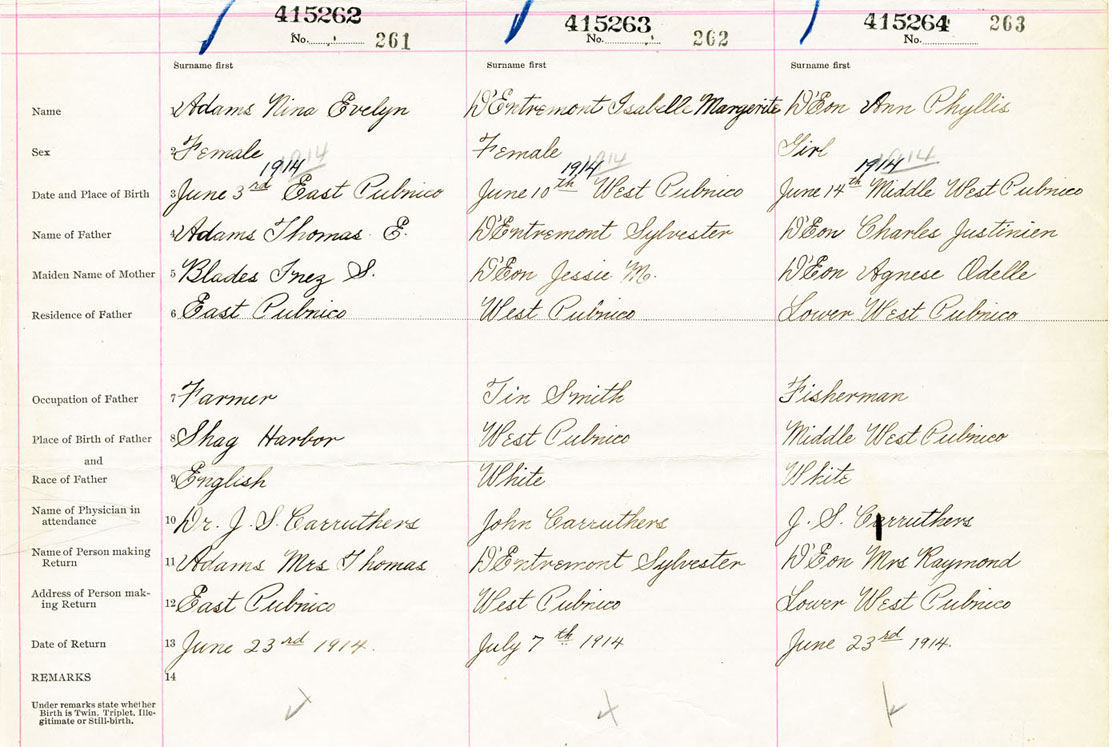 415262 415263 415264 263
No. 261 No. 262 No.
Surname first Surname first Surname first
Name Adams Nina Evelyn D'Entremont Isabelle Margerite D'Eon Ann Phyllis
Sex 2 Female Female Girl
1914 1914 1914 1914 1914 1914
Date and Place of Birth 3 June 3rd East Pubnico June 10th West Pubnico June 14th Middle West Pubnico
Name of Father 4 Adams Thomas E. D'Entremont Sylvester D'Eon Charles Justinien
Maiden Name of Mother 5 Blades Inez S. D'Eon Jessie M. D'Eon Agnese Odelle
Residence of Father 6 East Pubnico West Pubnico Lower West Pubnico
Occupation of Father 7 Farmer Tin Smith Fisherman
Place of Birth of Father 8 Shag Harbor West Pubnico Middle West Pubnico
and
Race of Father 9 English White White
Name of Physician in
attendance 10 Dr. J. S. Carruthers John Carruthers J. S. Carruthers
Name of Person making
Return 11 Adams Mrs Thomas D'Entremont Sylvester D'Eon Mrs Raymond
Address of Person mak-
ing Return 12 East Pubnico West Pubnico Lower West Pubnico
Date of Return 13 June 23rd 1914. July 7th 1914 June 23rd 1914.
REMARKS 14
Under remarks state whether
Birth is Twin, Triplet, Ille-
gitimate or Still-birth.